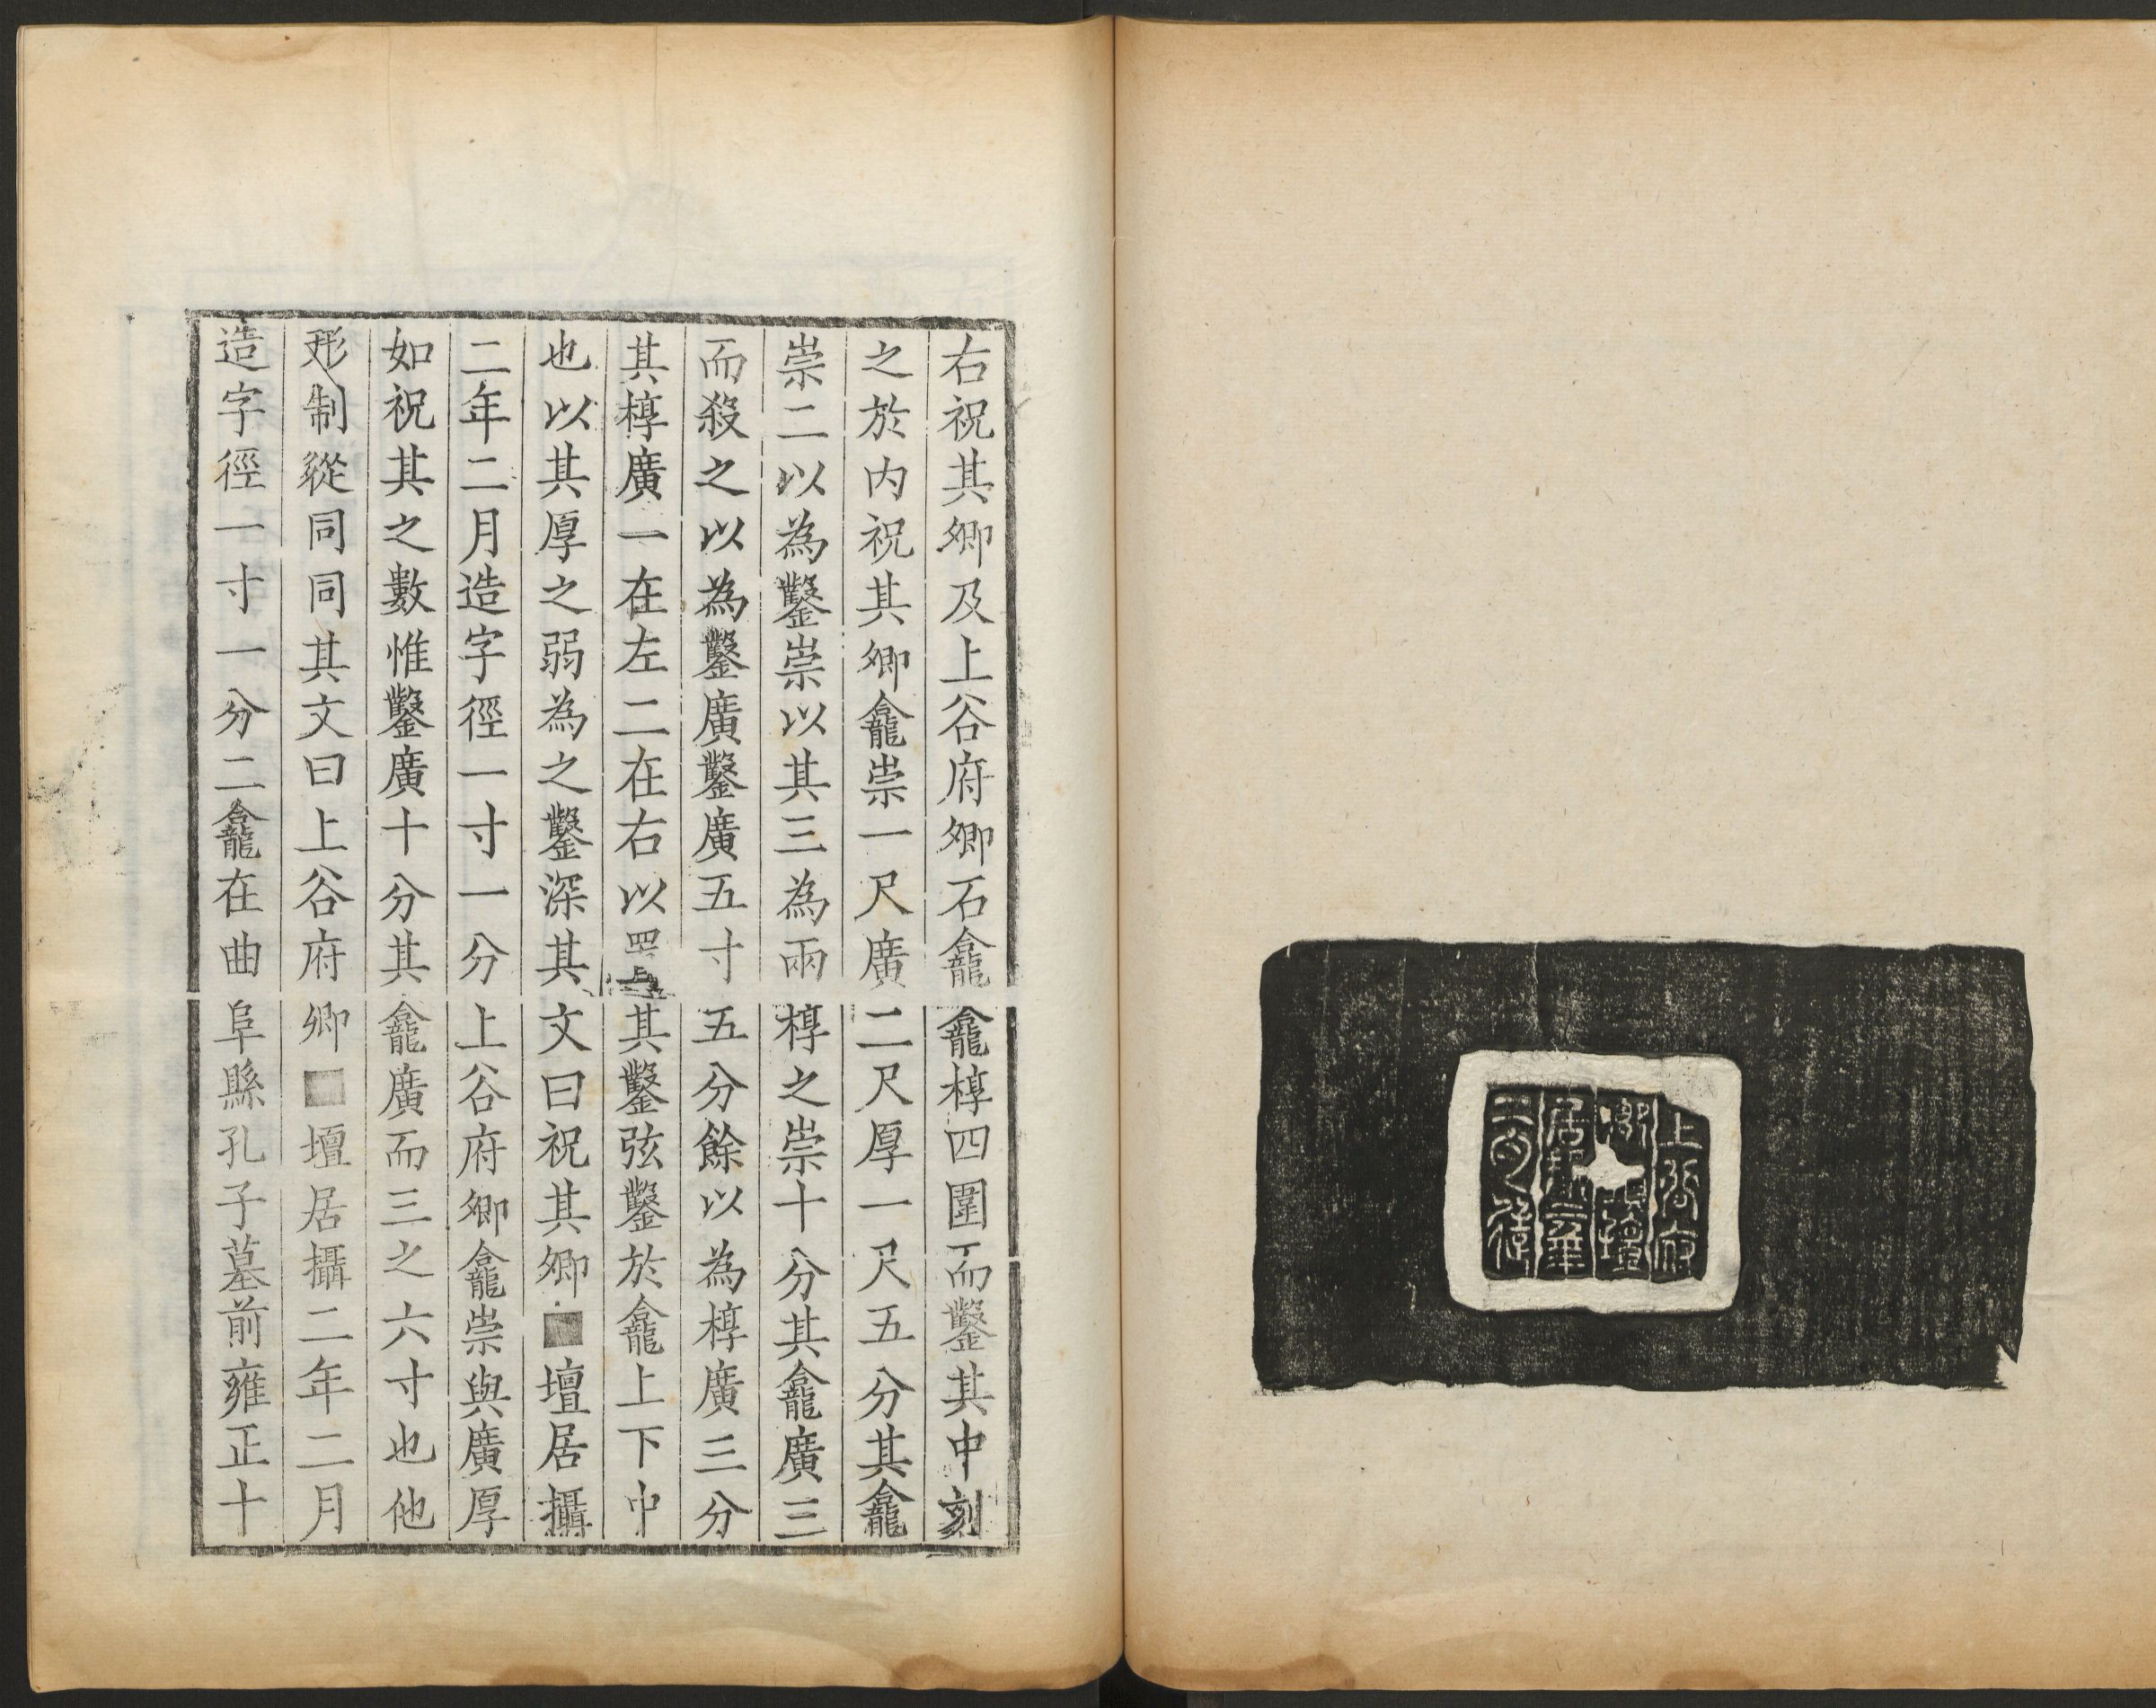 上谷府
卿壇
居攝二年
二月造
右祝其卿及上谷府卿石龕龕椁四圍而鑿其中刻
之於内祝其卿龕崇一尺廣二尺厚一尺五分其龕
崇二以為鑿崇以其三為兩椁之崇十分其龕廣三
而殺之以為鑿廣鑿廣五寸五分餘以為椁廣三分
其椁廣一在左二在右以其鑿弦鑿於龕上下中
也以其厚之弱為之鑿深其文曰祝其卿■壇居攝
二年二月造字徑一寸一分上谷府卿龕崇與廣厚
如祝其之數惟鑿廣十分其龕廣而三之六寸也他
形制從同同其文曰上谷府卿■壇居攝二年二月
造字徑一寸一分二龕在曲阜縣孔子墓前雍正十